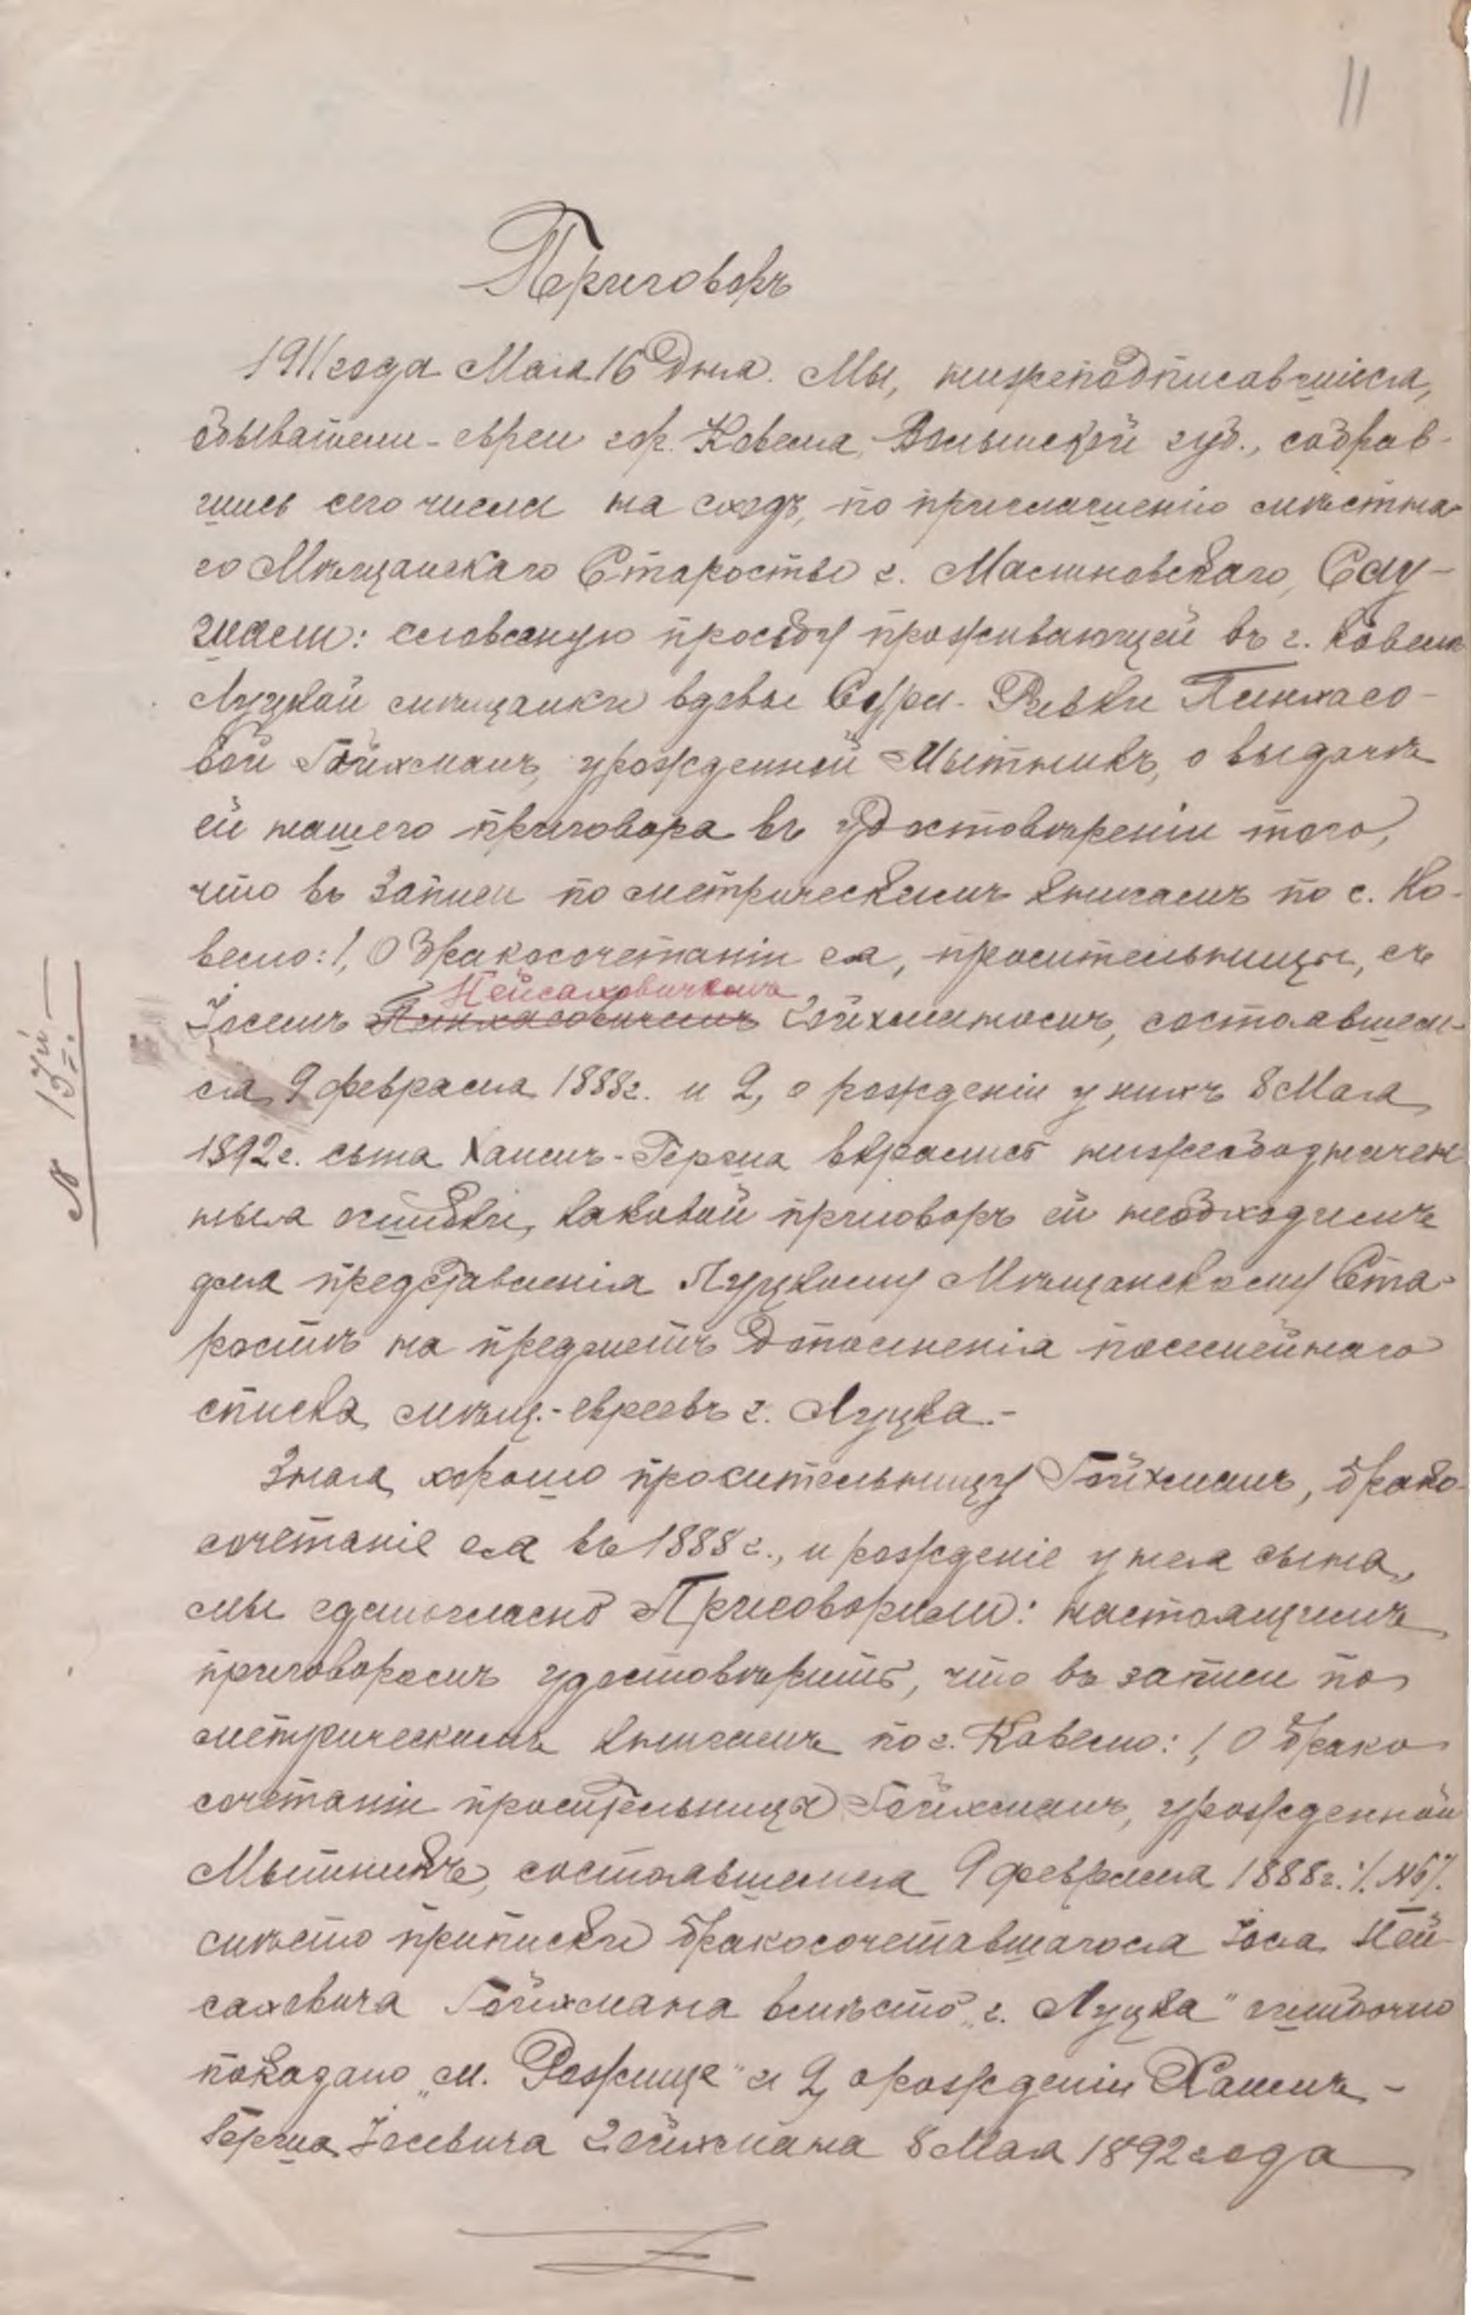 11
Приговоръ
1911 года Мая 16 дня. Мы, нижеподписавшіися,
обыватели-евреи гор. Ковеля, Волынской губ., собрав-
шись сего числа на сходъ, по приглашенію мѣстна-
го Мѣщанскаго Старосты г. Малиновскаго, Слу-
шали: словесную просьбу проживающей въ г. Ковелѣ
Луцкой мѣщанки вдовы Суры-Ривки Пинхасо-
вой Гойхманъ, урожденной Мытникъ, о выдачѣ
ей нашего приговора въ удостовѣреніи того,
что въ записи по метрическимъ книгамъ по г. Ко-
велю: 1, О бракосочетаніи ея, просительницы, съ
Нейсаховичемъ
Іосемъ Пинхасовичемъ Гойхманомъ, состоявшем-
ся 9 февраля 1888 г. и 2, о рожденіи у нихъ 8 Мая
1892 г. сына Хаимъ-Герша вкрались нижеобозначен-
ныя ошибки, каковой приговоръ ей необходимъ
для представленія Луцкому Мѣщанскому Ста-
ростѣ на предметъ дополненія посемейнаго
списка мѣщ.-евреевъ г. Луцка.-
Зная хорошо просительницу Гойхманъ, брако-
сочетаніе ея въ 1888 г., и рожденіе у нея сына,
мы единогласно Приговорили: настоящимъ
приговоромъ удостовѣрить, что въ записи по
метрическимъ книгамъ по г. Ковелю: 1, О брако-
сочетаніи просительницы Гойхманъ, урожденной
Мытникъ, состоявшемся 9 февраля 1888 г. /:№6/:
мѣсто приписки бракосочетавшагося Іося Ней-
саховича Гойхмана вмѣсто „г. Луцка" ошибочно
показано „м. Рожище" и 2, о рожденіи Хаимъ-
Герша Іосевича Гойхмана 8 Мая 1892 года
№ 13